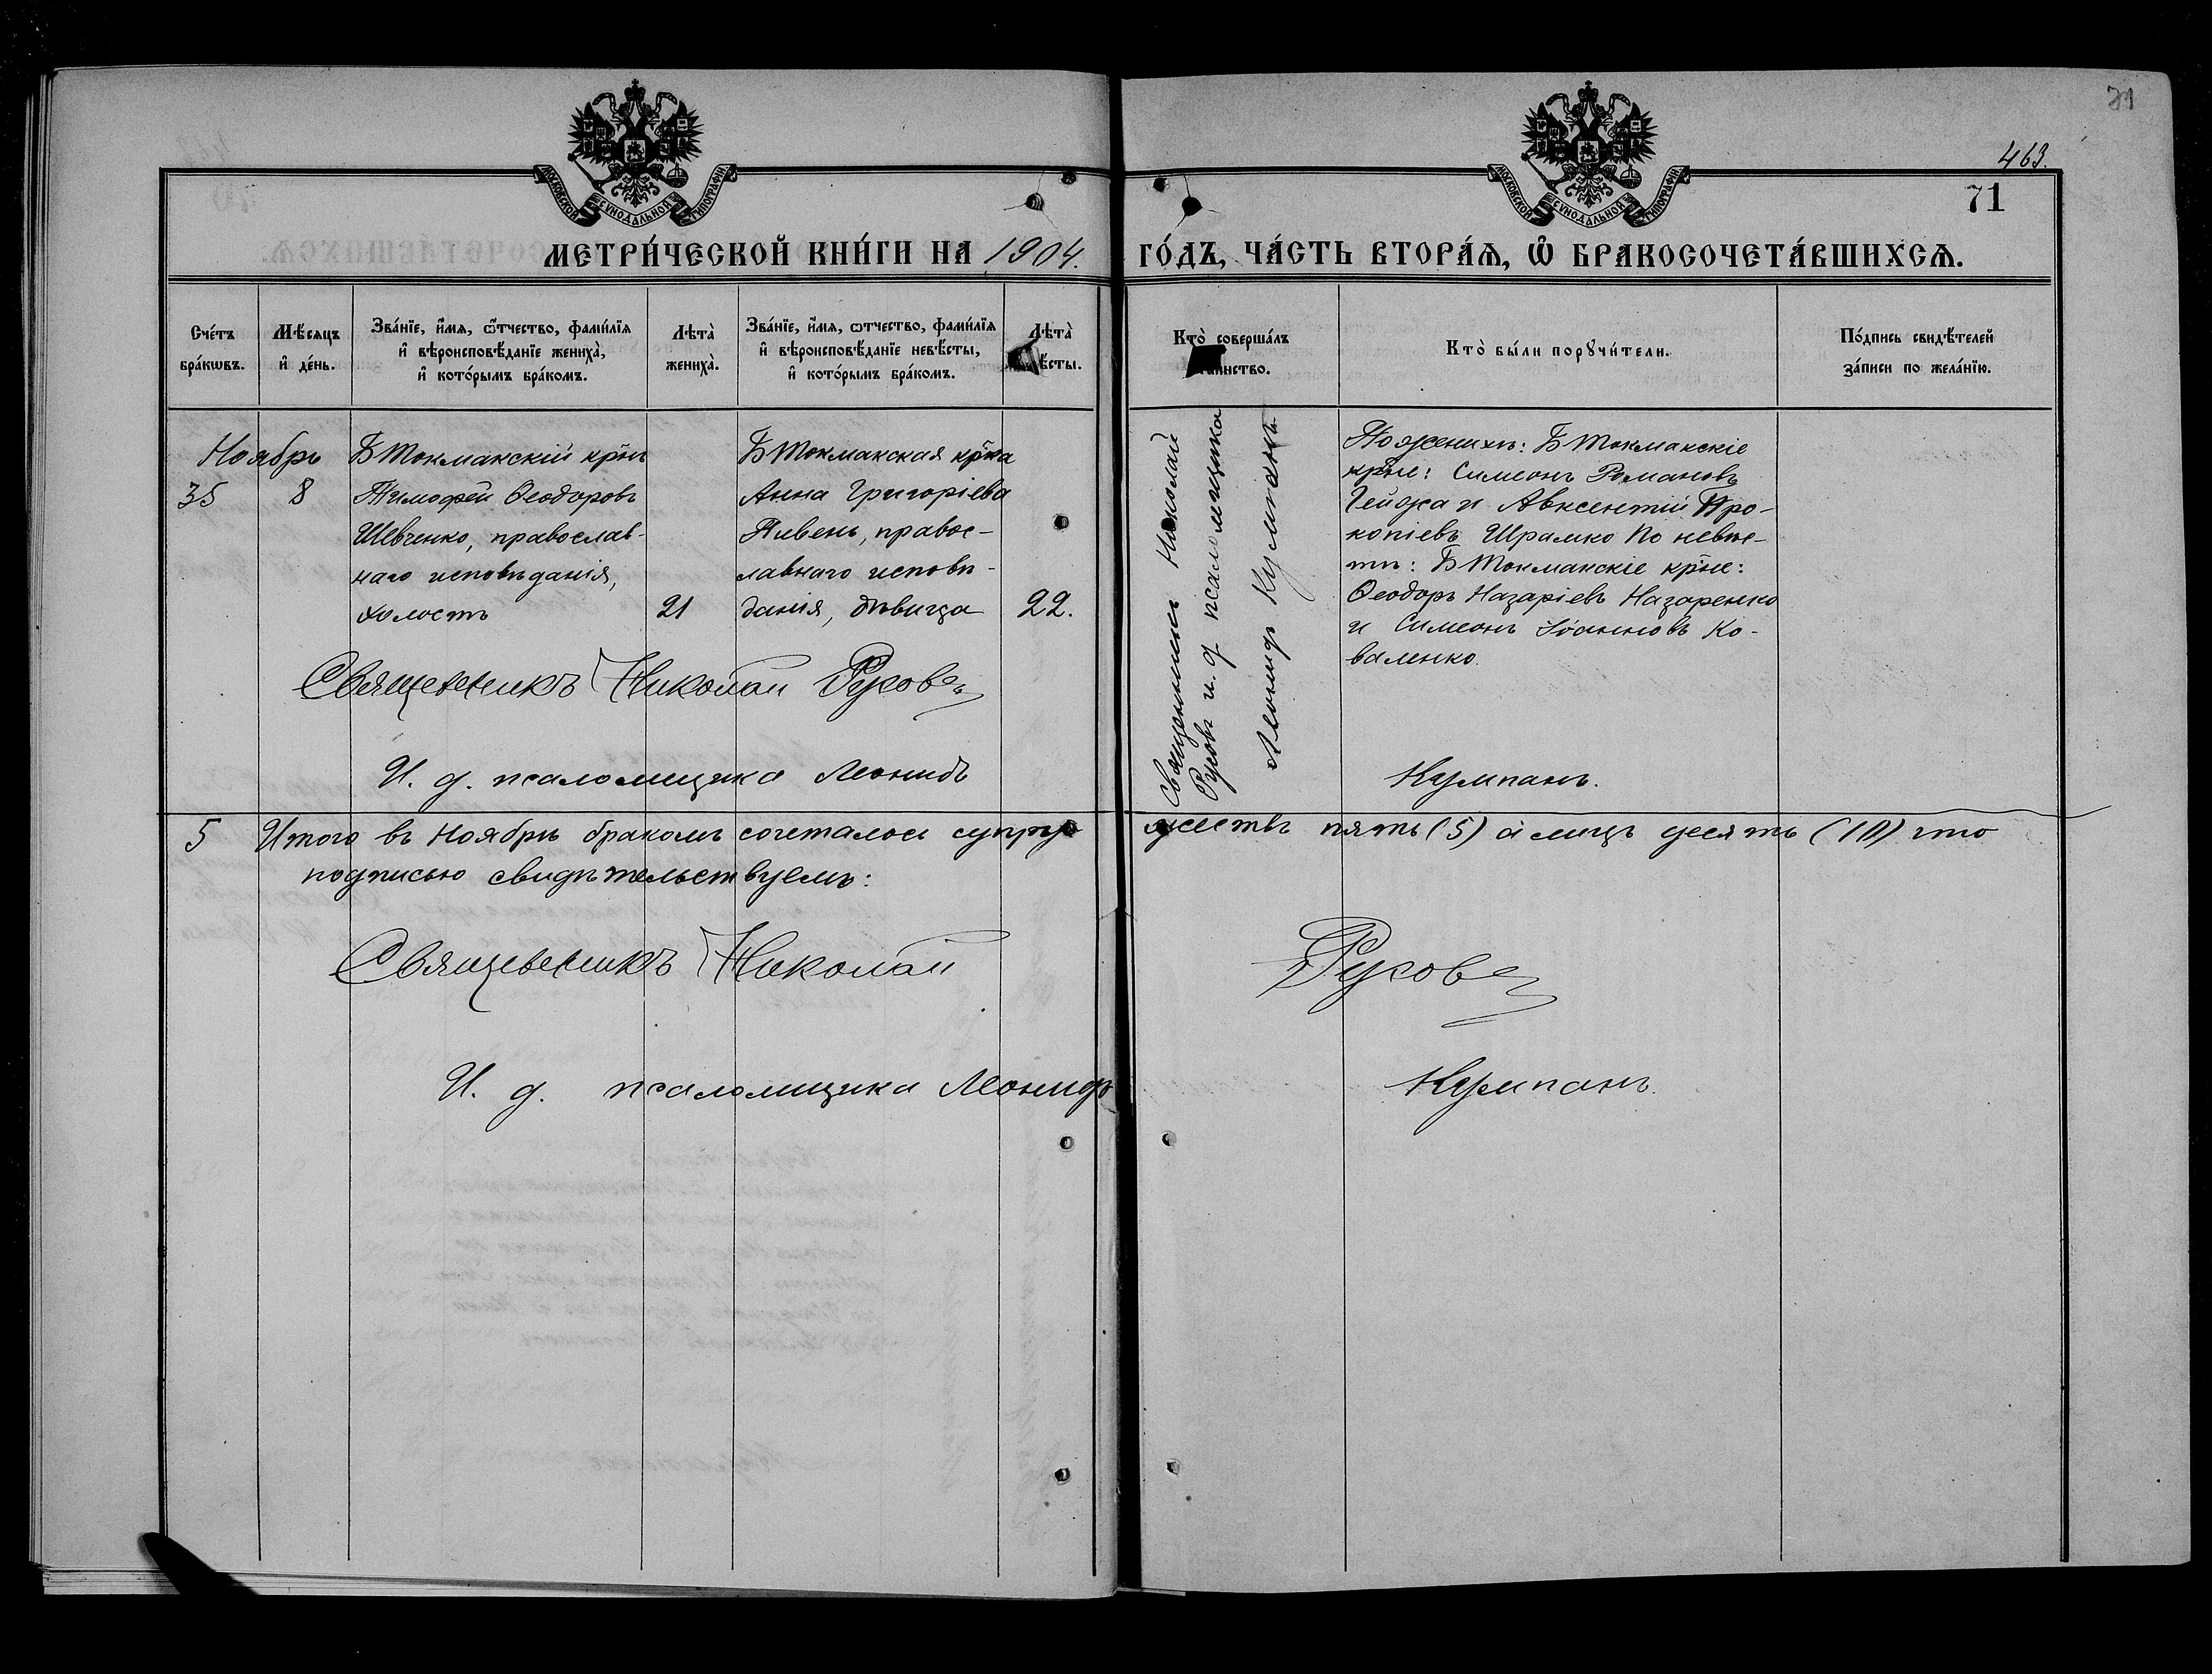 71
463.
71
МОСКОВСКОЙ СУНОДАЛЬНОЙ ТИПОГРАФІИ
МОСКОВСКОЙ СУНОДАЛЬНОЙ ТИПОГРАФІИ
МЕТРИ́ЧЕСКОЙ КНИ́ГИ НА 1904. ГО́ДЪ, ЧА́СТЬ ВТОРА́Ѧ, Ѽ БРАКОСОЧЕТА́ВШИХСѦ.
Сче́тъ
бра́кѡвъ.
Мѣ́сяцъ
и҆ де́нь.
Зва́нїе, и҆́мя, ѻ҆́тчество, фами́лїя
и҆ вѣроисповѣ́данїе жениха̀,
и҆ кото́рымъ бра́комъ.
Лѣта̀
жениха̀.
Зва́нїе, и҆́мя, ѻтчество, фами́лїя
и҆ вѣроисповѣ́данїе невѣ́сты,
и҆ кото́рымъ бра́комъ.
Лѣта̀
ѣ́сты.
Кто̀ соверша́лъ
таинство.
Кто̀ бы́ли порꙋчи́тели.
По́дпись свидѣ́телей
за́писи по жела́нїю.
Ноябрь
35
8
Б Токмакскій кр̃нъ
Тимофей Ѳеодоровъ
Шевченко, православ-
наго исповѣданія,
холостъ
21
Б Токмакская кр̃нка
Анна Григоріева
Пивень, правос-
лавнаго исповѣ-
данія, дѣвица
22.
Священникъ Николай
Русовъ и. д псаломщика
Леонидъ Кумпанъ.
По женихѣ: Б Токмакскіе
кр̃не: Симеонъ Романовъ
Гейджа и Авксентій Про-
копіевъ Шрамко По невѣс-
тѣ: Б Токмакскіе кр̃не:
Ѳеодоръ Назаріевъ Назаренко
и Симеонъ Іоанновъ Ко-
валенко.
Священникъ Николай Русовъ
И. д. псаломщика Леонидъ Кумпанъ.
5 Итого въ Ноябрѣ бракомъ сочеталось супружествъ пять (5) а лицъ десять (10) что
подписью свидѣтельствуемъ:
Священникъ Николай Русовъ
И. д. псаломщика Леонидъ Кумпанъ.